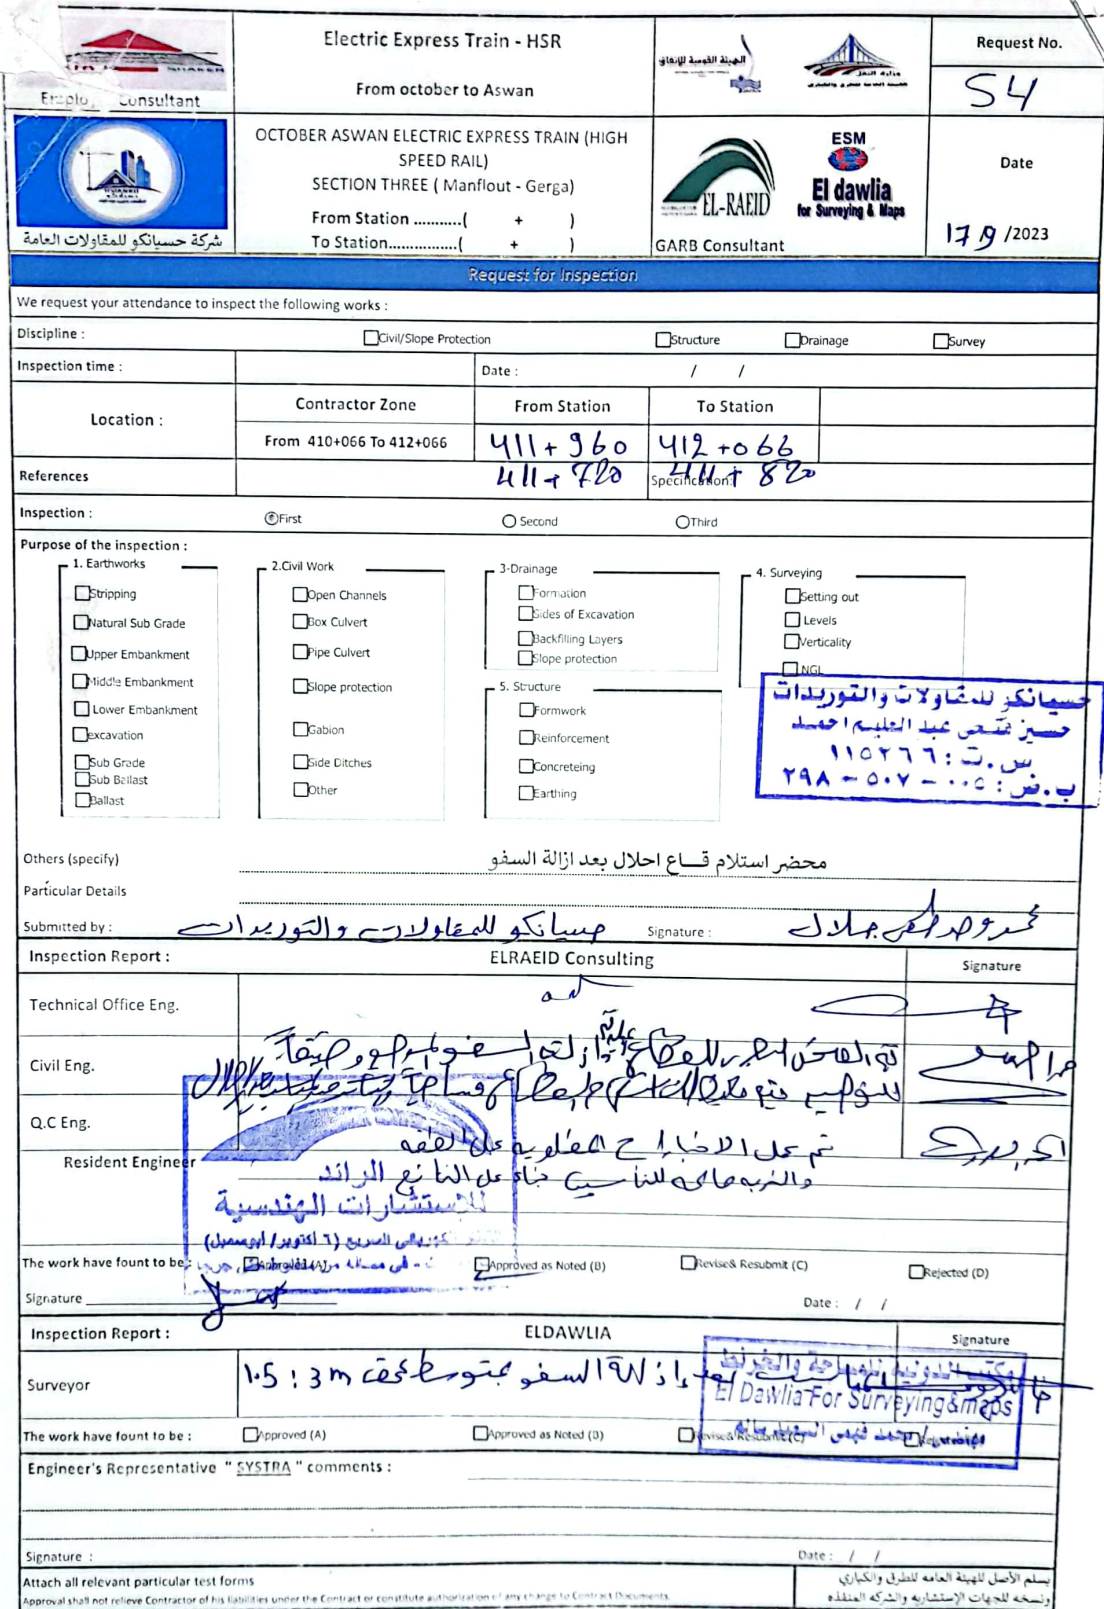 Electric Express Train - HSR
From october to Aswan
الهيئة القومية للإنفاق
وزارة النقل
Request No.
54
Consultant
OCTOBER ASWAN ELECTRIC EXPRESS TRAIN (HIGH
SPEED RAIL)
SECTION THREE ( Manflout - Gerga)
From Station ...........( + )
To Station................( + )
شركة حسيانكو للمقاولات العامة
EL-RAEID
GARB Consultant
ESM
El dawlia
for Surveying & Maps
Date
17 9 /2023
Request for Inspection
We request your attendance to inspect the following works :
Discipline : Civil/Slope Protection Structure Drainage Survey
Inspection time : Date : / /
Location : Contractor Zone From Station To Station
From 410+066 To 412+066 411+960 412+066
References 411+720 Specification: 411+820
Inspection : First Second Third
Purpose of the inspection :
1. Earthworks
Stripping
Natural Sub Grade
Upper Embankment
Middle Embankment
Lower Embankment
excavation
Sub Grade
Sub Ballast
Ballast
2.Civil Work
Open Channels
Box Culvert
Pipe Culvert
Slope protection
Gabion
Side Ditches
Other
3-Drainage
Formation
Sides of Excavation
Backfilling Layers
Slope protection
5. Structure
Formwork
Reinforcement
Concreteing
Earthing
4. Surveying
Setting out
Levels
Verticality
NGL
حسيانكو للمقاولات والتوريدات
حسين فتحى عبد العليم احمد
س.ت: ١١٥٢٦٦
ب.ض: ٠٠٥ - ٥٠٧ - ٢٩٨
Others (specify) محضر استلام قـــاع احلال بعد ازالة السفو
Particular Details
Submitted by : حسيانكو للمقاولات والتوريدات Signature : جلال
Inspection Report : ELRAEID Consulting Signature
Technical Office Eng.
Civil Eng.
Q.C Eng.
تم عمل الاختبارات المطلوبة على الطبقة
Resident Engineer
والتربة صالحة للتأسيس بناء على النتائج
الرائد
للاستشارات الهندسية
السريع (٦ اكتوبر/ ابوسمبل)
The work have fount to be : Approved (A) Approved as Noted (B) Revise& Resubmit (C) Rejected (D)
Signature Date : / /
Inspection Report : ELDAWLIA Signature
Surveyor
بعد ازالة السفو بمتوسط عمق 3m : 1.5
El Dawlia For Surveying & maps
The work have fount to be : Approved (A) Approved as Noted (B) Revise& Resubmit (C)
Engineer's Representative " SYSTRA " comments :
Signature : Date : / /
Attach all relevant particular test forms
Approval shall not relieve Contractor of his liabilities under the Contract or constitute authorization of any change to Contract Documents.
يسلم الأصل للهيئة العامه للطرق والكباري
ونسخه للجهات الإستشاريه والشركه المنفذه